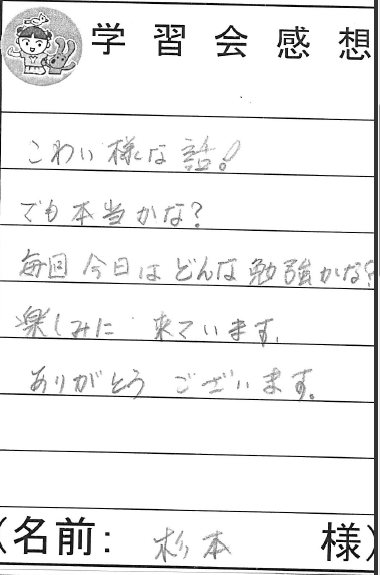 学習会感想
こわい様な話!
でも本当かな?
毎回今日はどんな勉強かな?
楽しみに来ています。
ありがとうございます。
(名前: 杉本 様)